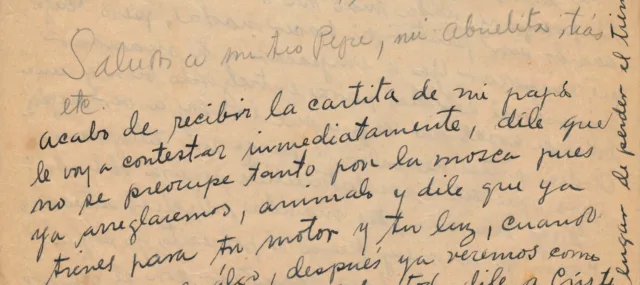 Saludos a mi tio Pepe, mi Abuelita, tias
etc.
acabo de recibir la cartita de mi papá
le voy a contestar inmediatamente, dile que
no se preocupe tanto por la mosca pues
ya arreglaremos, animalo y dile que ya
tienes para tu motor y tu luz, cuando
algo, después ya veremos como
dile a
lugar de perder el tiem